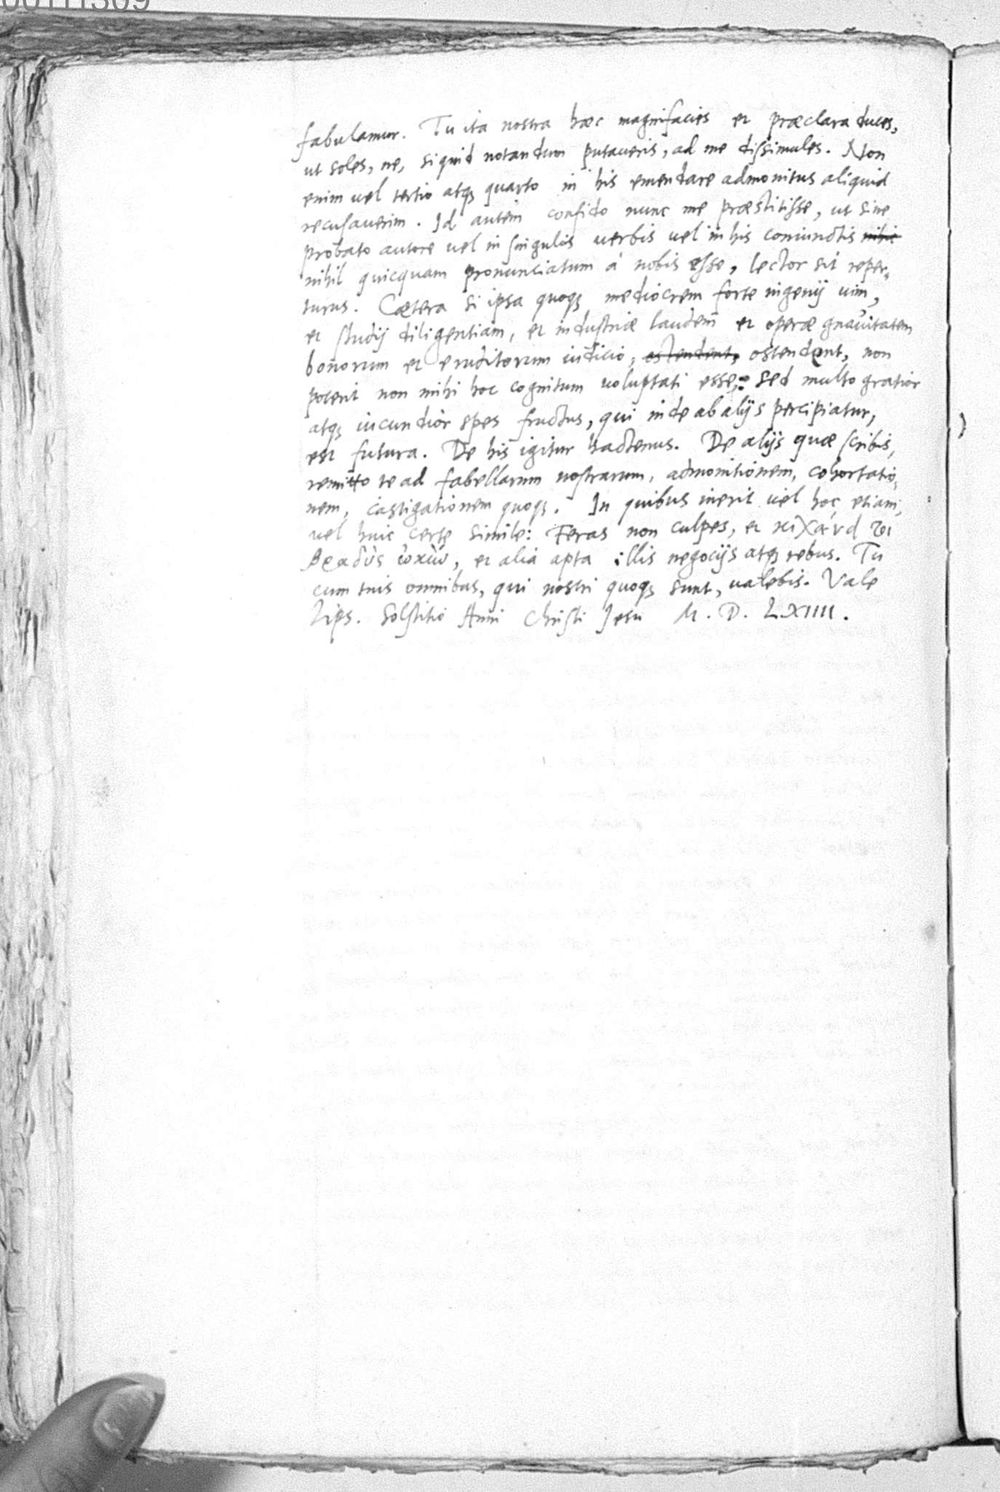 fabulamur. Tu ita nostra haec magnifacies et praeclara duces,
ut soles, ne, siquid notandum putaveris, ad me dissimules. Non
enim vel tertio atq; quarto in his emendare admonitus aliquid
recusaverim. Id autem confido nunc me praestitisse, ut sine
probato autore vel in singulis verbis vel in his coniunctis nihil
nihil quicquam pronunciatum à nobis esse, lector sit reper-
turus. Caetera si ipsa quoq; mediocrem forte ingenij vim,
et studij diligentiam, et industriae laudem et operae gnavitatem
bonorum et eruditorum iudicio, ostendent, ostendent, non
poterit non mihi hoc cognitum voluptati esse: Sed multo gratior
atq; iucundior spes fructus, qui inde ab alijs percipiatur,
est futura. De his igitur hactenus. De alijs quae scribis,
remitto te ad fabellarum nostrarum, admonitionem, cohortatio-
nem, castigationem quoq;. In quibus inerit vel hoc etiam,
vel huic certe simile: Feras non culpes, et
et alia apta illis negocijs atq; rebus. Tu
cum tuis omnibus, qui nostri quoq; sunt, valebis. Vale
Lips. Solstitio Anni Christi Jesu M. D. LXIIII.